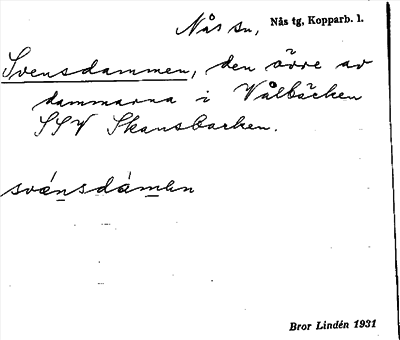 Nås sn, Nås tg, Kopparb. l.
Svensdammen, den övre av
dammarna i Vålbäcken
SSV Skansbacken.
svénsdàmen
Bror Lindén 1931